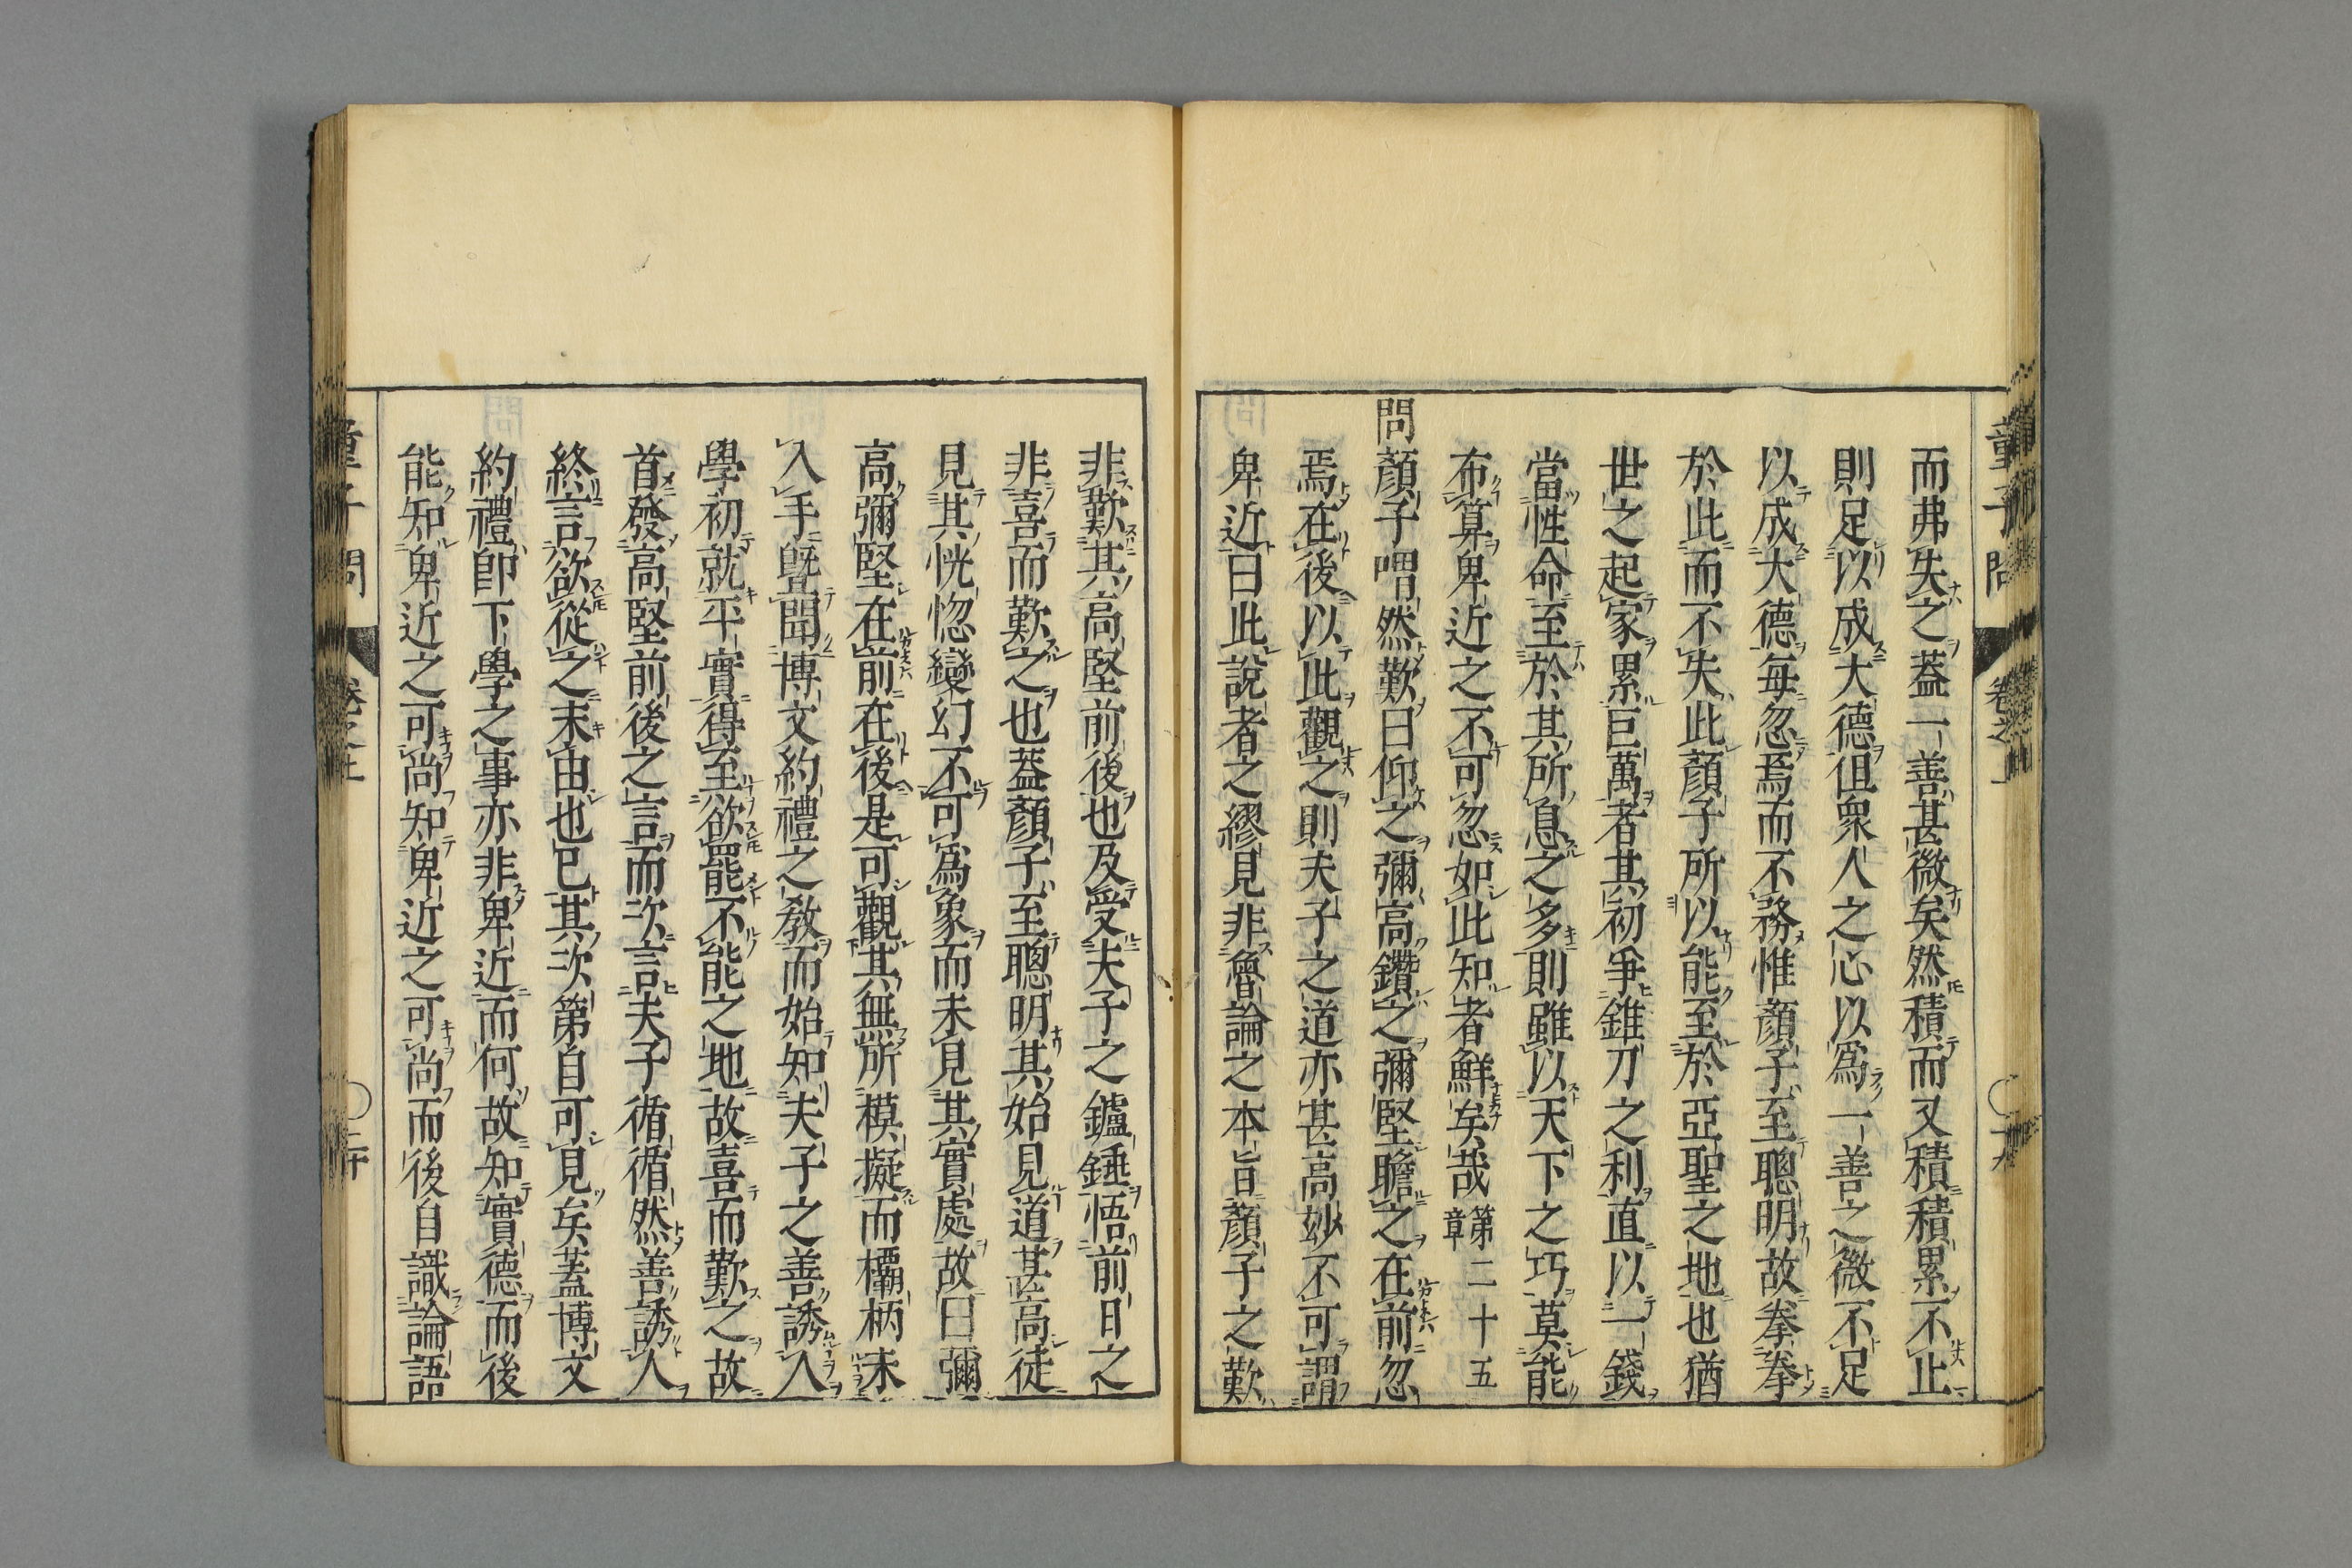 而弗失之蓋一善甚微矣然積而又積積累不止
則足以成大德但衆人之心以爲一善之微不足
以成大德毎忽焉而不務惟顏子至聰明故拳拳
於此而不失此顏子所以能至於亞聖之地也猶
世之起家累巨萬者其初爭錐刀之利直以一錢
當性命至於其所息之多則雖以天下之巧莫能
布算卑近之不可忽如此知者鮮矣哉第二十五章
問顏子喟然歎曰仰之彌高鑽之彌堅瞻之在前忽
焉在後以此觀之則夫子之道亦甚高妙不可謂
卑近曰此說者之繆見非魯論之本旨顏子之歎
非歎其高堅前後也及受夫子之鑪錘悟前日之
非喜而歎之也蓋顏子至聰明其始見道甚高徒
見其恍惚變幻不可爲象而未見其實處故曰彌
高彌堅在前在後是可觀其無所模擬而欛柄未
入手曁聞博文約禮之敎而始知夫子之善誘入
學初就平實得至欲罷不能之地故喜而歎之故
首發高堅前後之言而次言夫子循循然善誘人
終言欲從之末由也已其次第自可見矣蓋博文
約禮卽下學之事亦非卑近而何故知實德而後
能知卑近之可尚知卑近之可尚而後自識論語